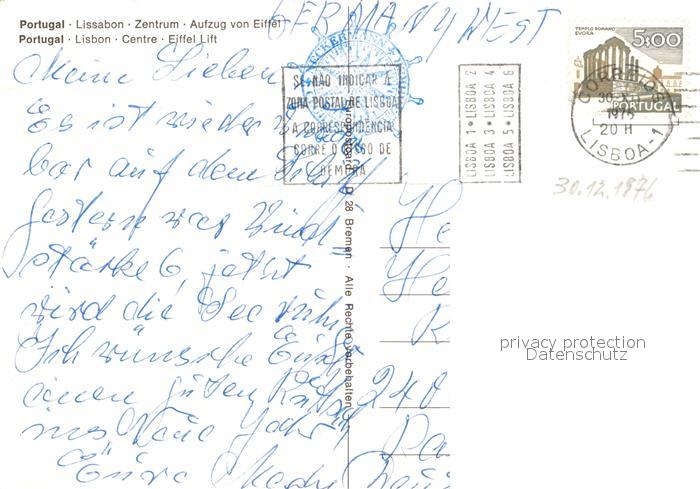 Portugal · Lissabon · Zentrum · Aufzug von Eiffel
Portugal · Lisbon · Centre · Eiffel Lift
GERMANY WEST
TEMPLO ROMANO
EVORA
5$00
PORTUGAL
CORREIOS
1976
20 H
LISBOA-1
30.12.1976
SE NÃO INDICAR A
ZONA POSTAL DE LISBOA
A CORRESPONDÊNCIA
CORRE O RISCO DE
DEMORA
LISBOA 1 • LISBOA 2
LISBOA 3 • LISBOA 4
LISBOA 5 • LISBOA 6
Meine Lieben
Es ist wieder
bar auf dem Schiff
gestern war Wind=
stärke 6, jetzt
wird die See ruhig
Ich wünsche Euch
einen guten Rutsch
ins Neue Jahr
Eure
28 Bremen · Alle Rechte vorbehalten
He
He
R
240
privacy protection
Datenschutz